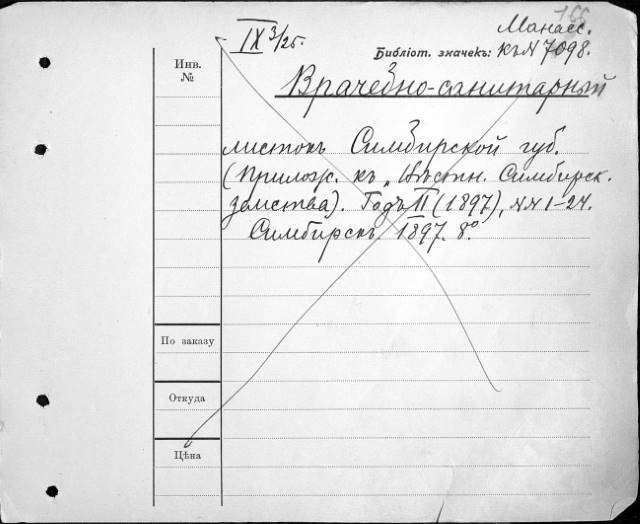 166
Манасс.
IX 3/25.
Библіот. значекъ: къ № 7098.
Инв.
№
Врачебно-санитарный
листокъ Симбирской губ.
(Прилож. къ „Вѣстн. Симбирск.
земства). Годъ II (1897), №№ 1-24.
Симбирскъ. 1897. 8°.
По заказу
Откуда
Цѣна